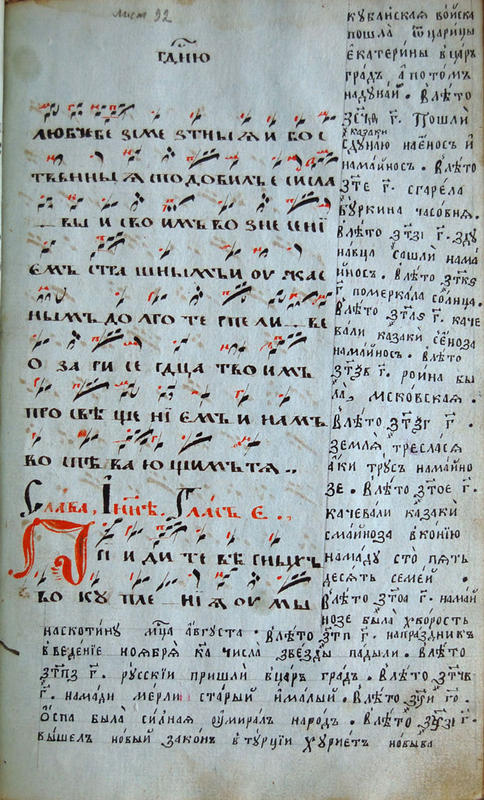 лист 92
гдⷭ҇ню
любче бе зме зтны ѧ и бо с
твенны ѧ сподобилъ е си сла
вы и сво имъ во зне сені
емъ стра шнымъ и оу жас
нымъ до лго те рпе ли ве
о за ри се рдца тво имъ
про свѣ ще ні емъ и намъ
во спѣ ва ю щимъ тѧ ..
Слава, Інн҃ѣ. Гласъ є҃.,
Прі и ди те вѣ рныхъ
во ку пле ні ѧ оу мы
кубанская войска
пошла ѿ царицы
екатерины в царь
градъ, а потомъ
на дунай. Влѣто
г҃. Пошли
казаки
с дунаю на еносъ и
на майносъ. Влѣто
г҃. сгарела
буркина часовня.
Влѣто ҂зтзі г҃. з ду
навца сашли на ма
йносъ. Влѣто ҂зткѕ
г҃ померкала солнца.
Влѣто ҂зтлѕ г҃. каче
вали казаки с еноза
на майносъ. Влѣто
г҃. роина бы
ла, московская.
Влѣто г҃.
земля треслася
аки трусъ на майно
зе. Влѣто ҂зтое г҃.
качевали казаки
с майноза в конию
на маду сто пять
десять семей.
Влѣто ҂зтоа г҃. на май
нозе была хворость
на скотину мц҃а августа. Влѣто ҂зтп г҃. на праздникъ
введение ноября ка числа звезды падыли. Влѣто
҂зтпз г҃. русскіи пришли в царь градъ. Влѣто ҂зтчв
г҃. на мади мерли старый и малый. Влѣто го҃.
оспа была силная оумиралъ народъ. Влѣто г҃.
вышелъ новый законъ в турціи хуриетъ